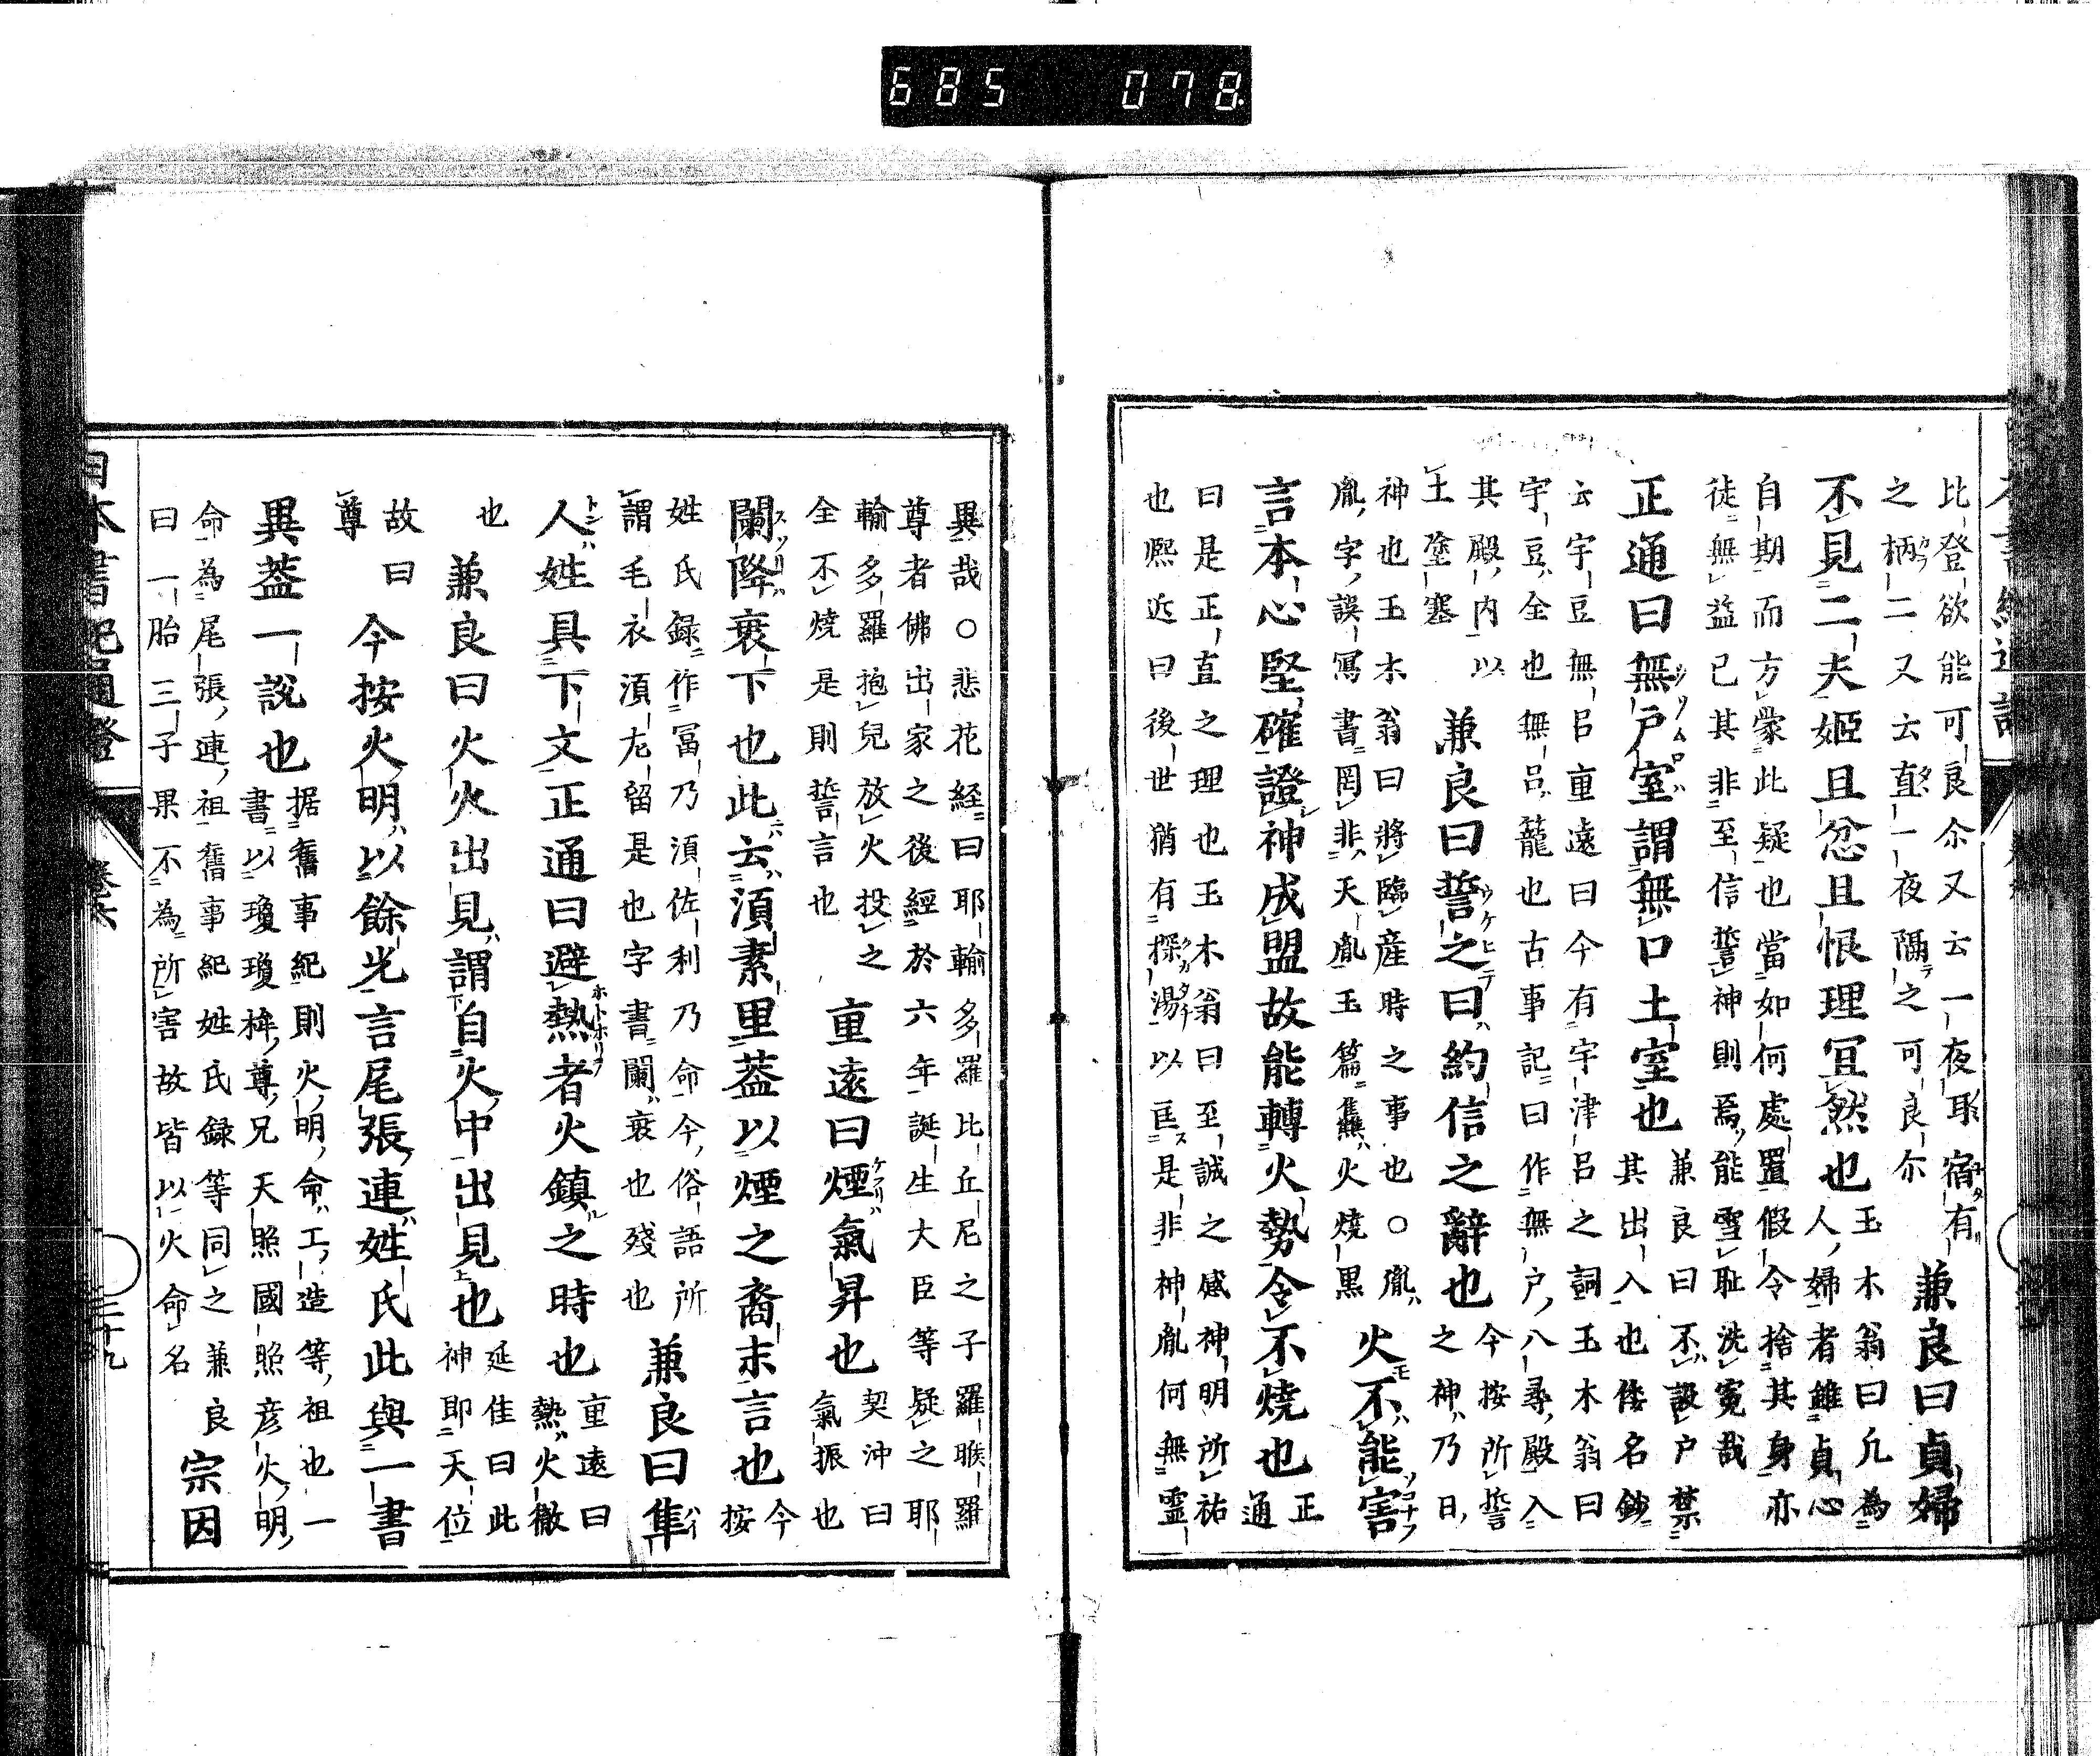 685 078
比登欲能可良尒又云一夜耴宿有 兼良曰貞婦
之柄二又云直一夜隔之可良尒
不見二夫姬且忿且恨理冝然也 玉木翁曰凡為
人婦者雖貞心
自期而方蒙此疑也當如何處置假令捨其身亦
徒無益已其非至信誓神則焉能雪耻洗寃哉
正通曰無戶室謂無口土室也 兼良曰不設户禁
其出入也倭名鈔
云宇豆無呂重遠曰今有宇津呂之詞玉木翁曰
宇豆全也無呂籠也古事記曰作無户八尋殿入
其殿內以 兼良曰誓之曰約信之辭也 今按所誓
土塗塞 之神乃日
神也玉木翁曰將臨產時之事也○胤 火不能害
胤字誤寫書罔非天胤玉篇焦火燒黒
言本心堅確證神成盟故能轉火勢令不燒也 正
通
曰是正直之理也玉木翁曰至誠之感神明所祐
也熈近曰後世猶有探湯以匡是非神胤何無霊
異哉○悲花経曰耶輸多羅比丘尼之子羅睺羅
尊者佛出家之後經於六年誕生大臣等疑之耶
輸多羅抱兒放火投之 重遠曰煙氣昇也 契沖曰
全不燒是則誓言也 氣振也
闌降衰下也此云湏素里葢以煙之裔末言也 今
按
姓氏録作冨乃湏佐利乃命今俗語所 兼良曰隼
謂毛衣湏尨留是也字書闌衰也殘也
人姓具下文正通曰避熱者火鎮之時也 重遠曰
熱火徹
也 兼良曰火火出見謂自火中出見也 延佳曰此
神耶天位
故曰 今按火明以餘光言尾張連姓氏此與一書
尊
異葢一說也 据舊事紀則火明命工造等祖也一
書以瓊瓊杵尊兄天照國照彦火明
命為尾張連祖舊事紀姓氏録等同之兼良 宗因
曰一胎三子果不為所害故皆以火命名
日本書紀通證 卷六 三十九